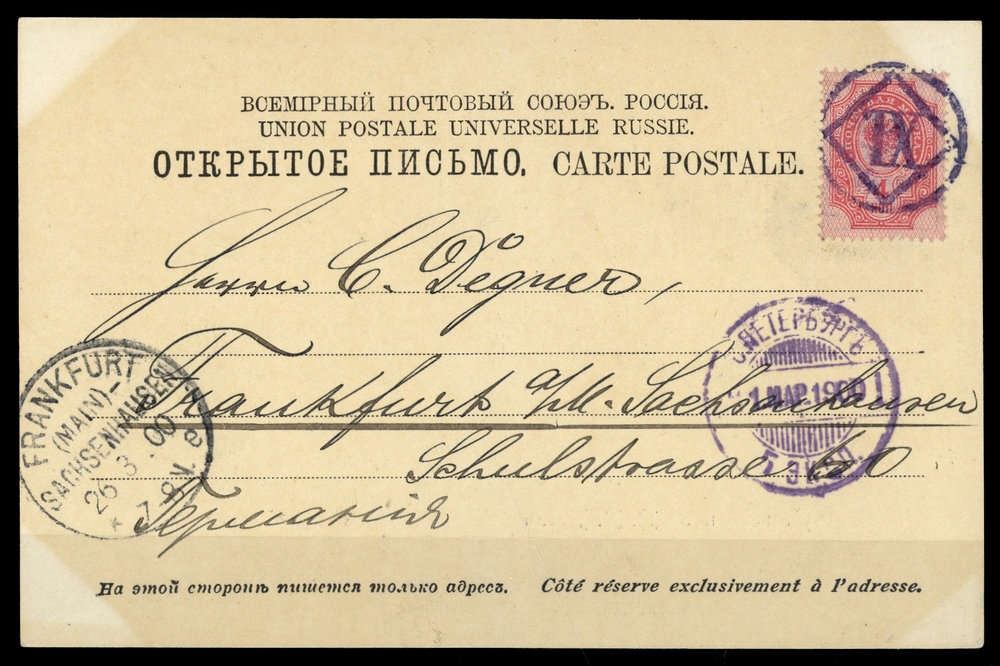 ВСЕМІРНЫЙ ПОЧТОВЫЙ СОЮЭЪ. РОССІЯ.
UNION POSTALE UNIVERSELLE RUSSIE.
ОТКРЫТОЕ ПИСЬМО. CARTE POSTALE.
ПОЧТОВАЯ МАРКА
4
IX
Herrn C. Degner,
Frankfurt a/M. Sachsenhausen
Schulstrasse 60
Германия
С.ПЕТЕРБУРГЪ
1 МАР. 1900
FRANKFURT
(MAIN)-
SACHSENHAUSEN
26 3 00
7-8N.
На этой сторонѣ пишется только адресъ. Côté réserve exclusivement à l'adresse.